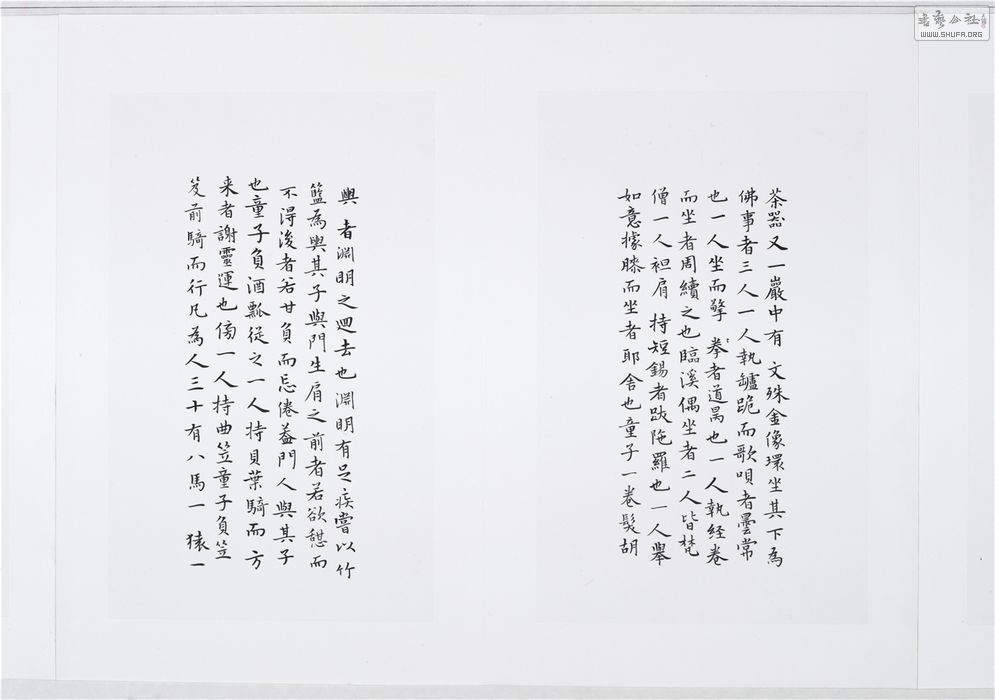 茶器又一巖中有文殊金像環坐其下為
佛事者三人一人執罏跪而歌唄者曇常
也一人坐而擎拳者道昺也一人執経卷
而坐者周續之也臨溪偶坐者二人皆梵
僧一人袒肩持短錫者跋陁羅也一人舉
如意據膝而坐者耶舍也童子一卷髮胡
輿者淵明之迴去也淵明有足疾嘗以竹
籃為輿其子與門生肩之前者若欲憇而
不得後者若甘負而忘倦葢門人與其子
也童子負酒瓢從之一人持貝葉騎而方
来者謝靈運也傍一人持曲笠童子負笠
笈前騎而行凡為人三十有八馬一猿一
書藝公社
WWW.SHUFA.ORG